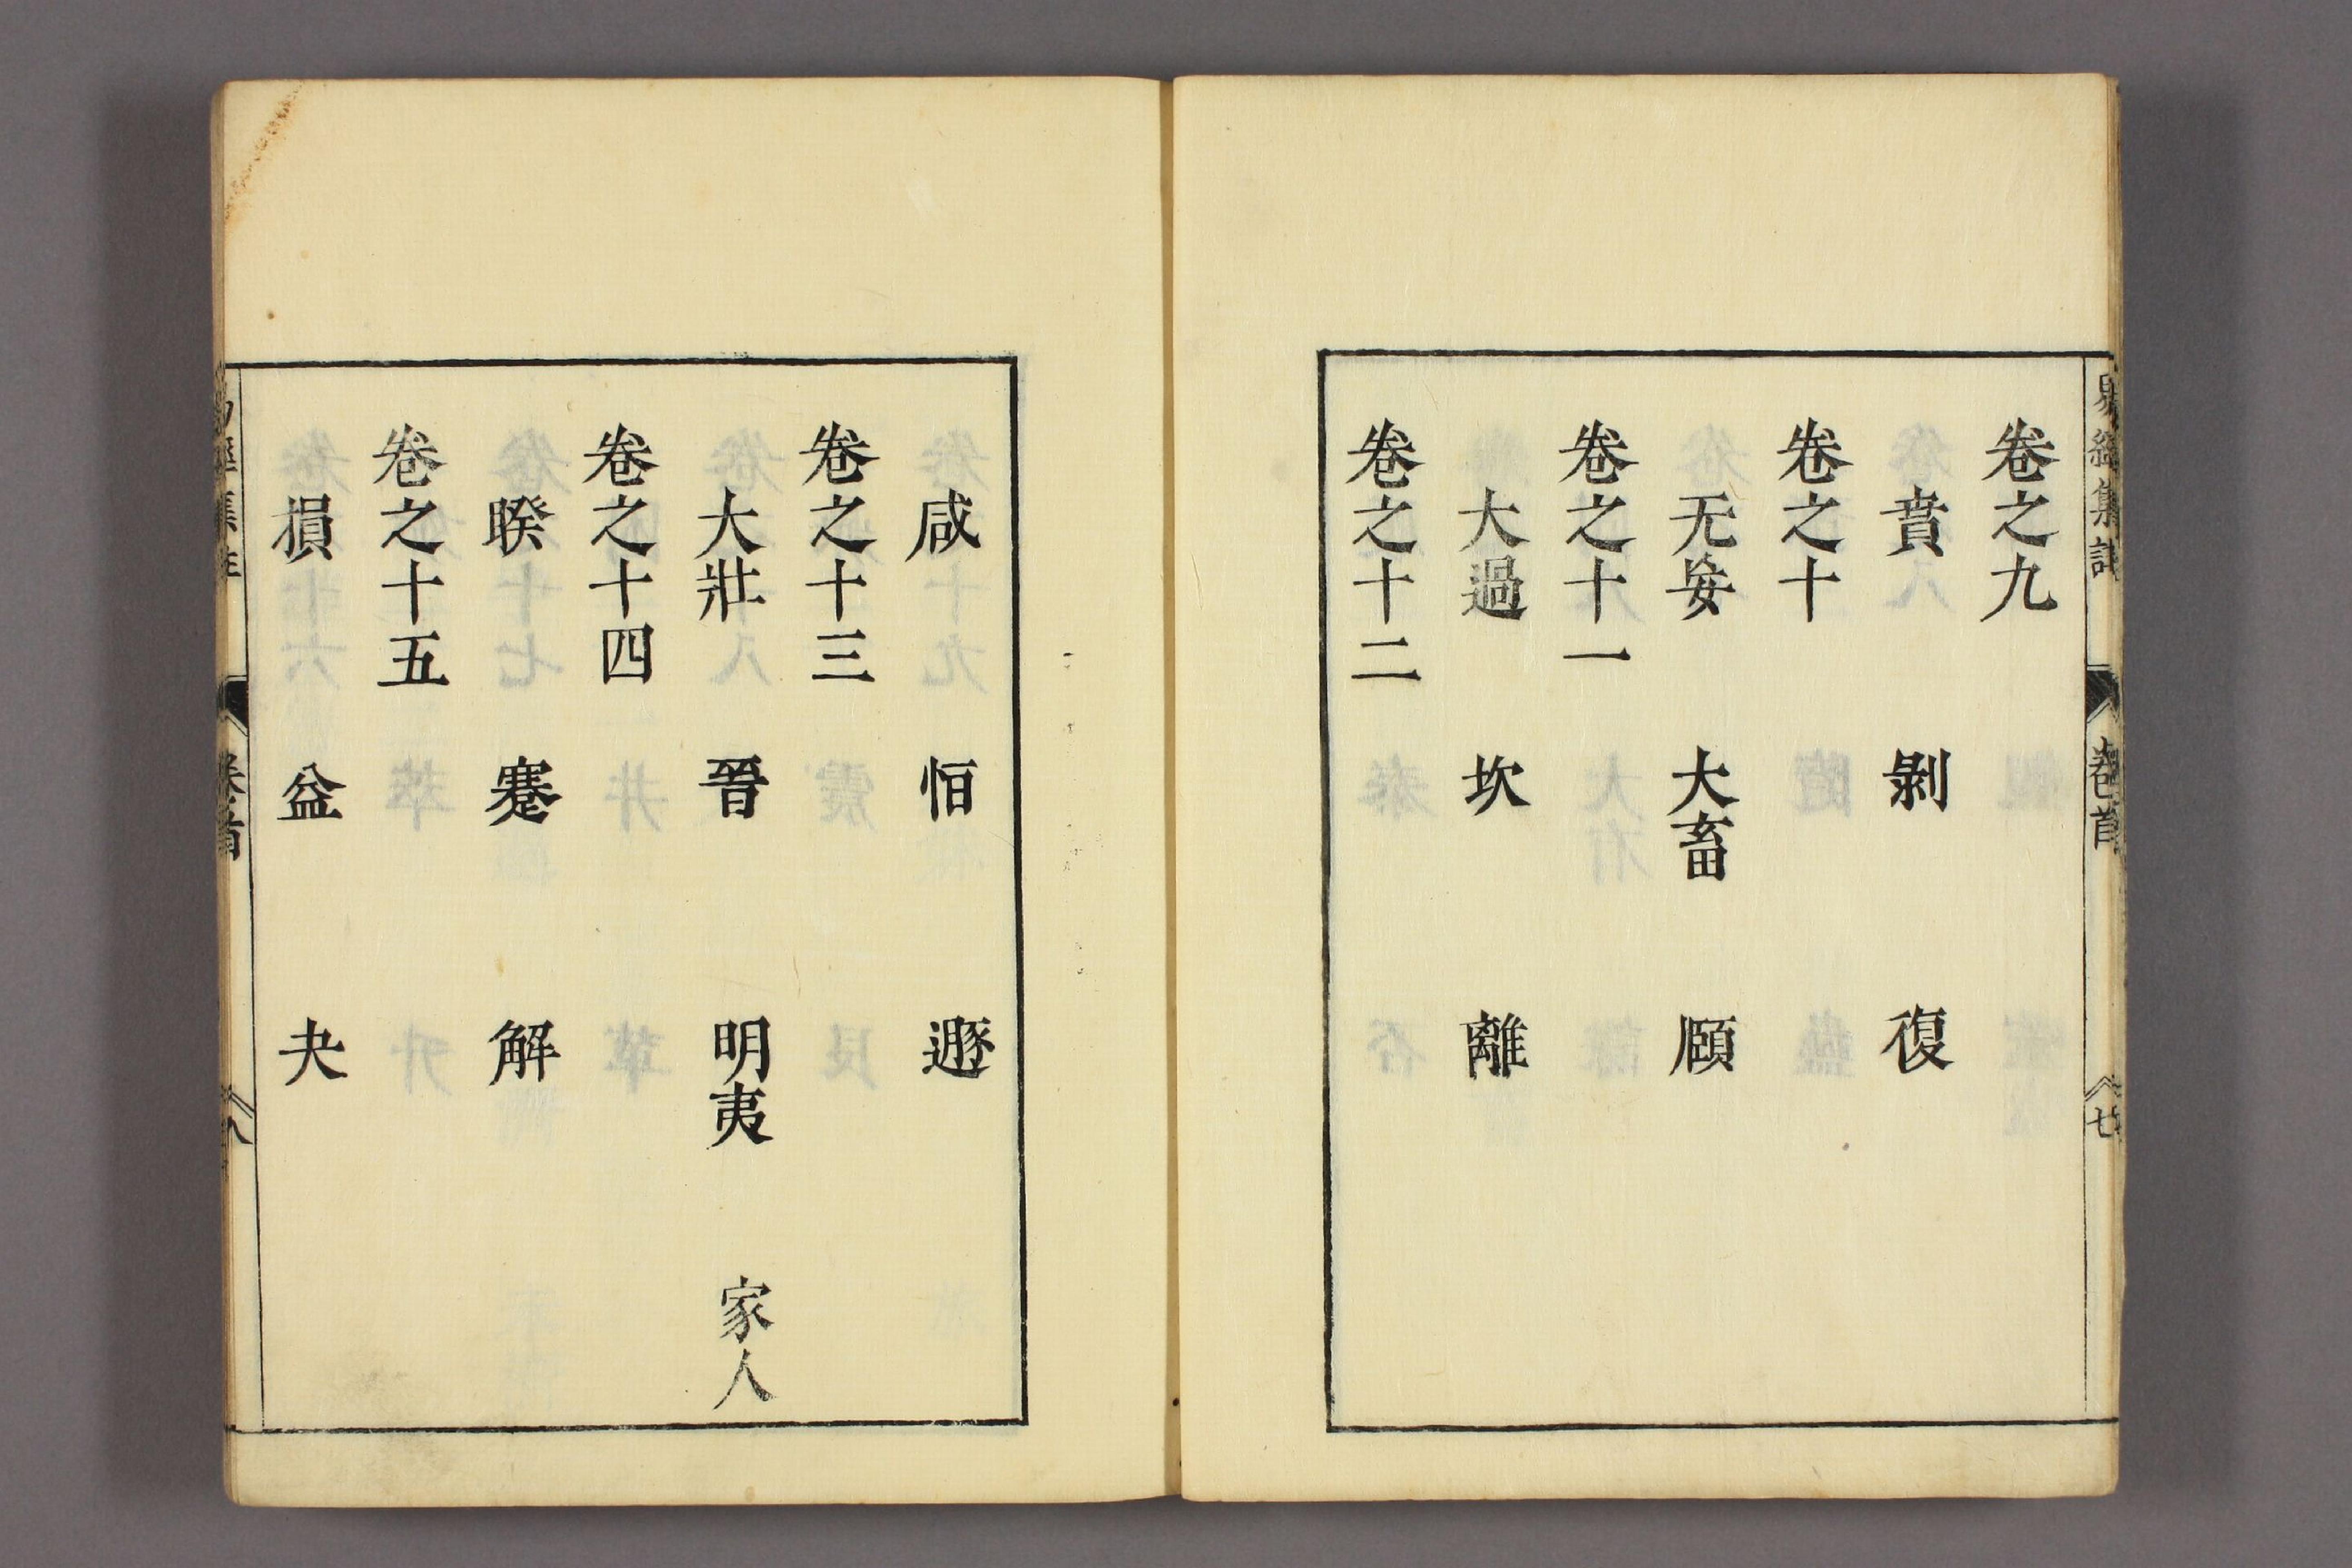 易經集註
卷首
七
卷之九
賁 剝 復
卷之十
无妄 大畜 頤
卷之十一
大過 坎 離
卷之十二
咸 恒 遯
卷之十三
大壯 晉 明夷 家人
卷之十四
睽 蹇 解
卷之十五
損 益 夬
易經集註
卷首
八